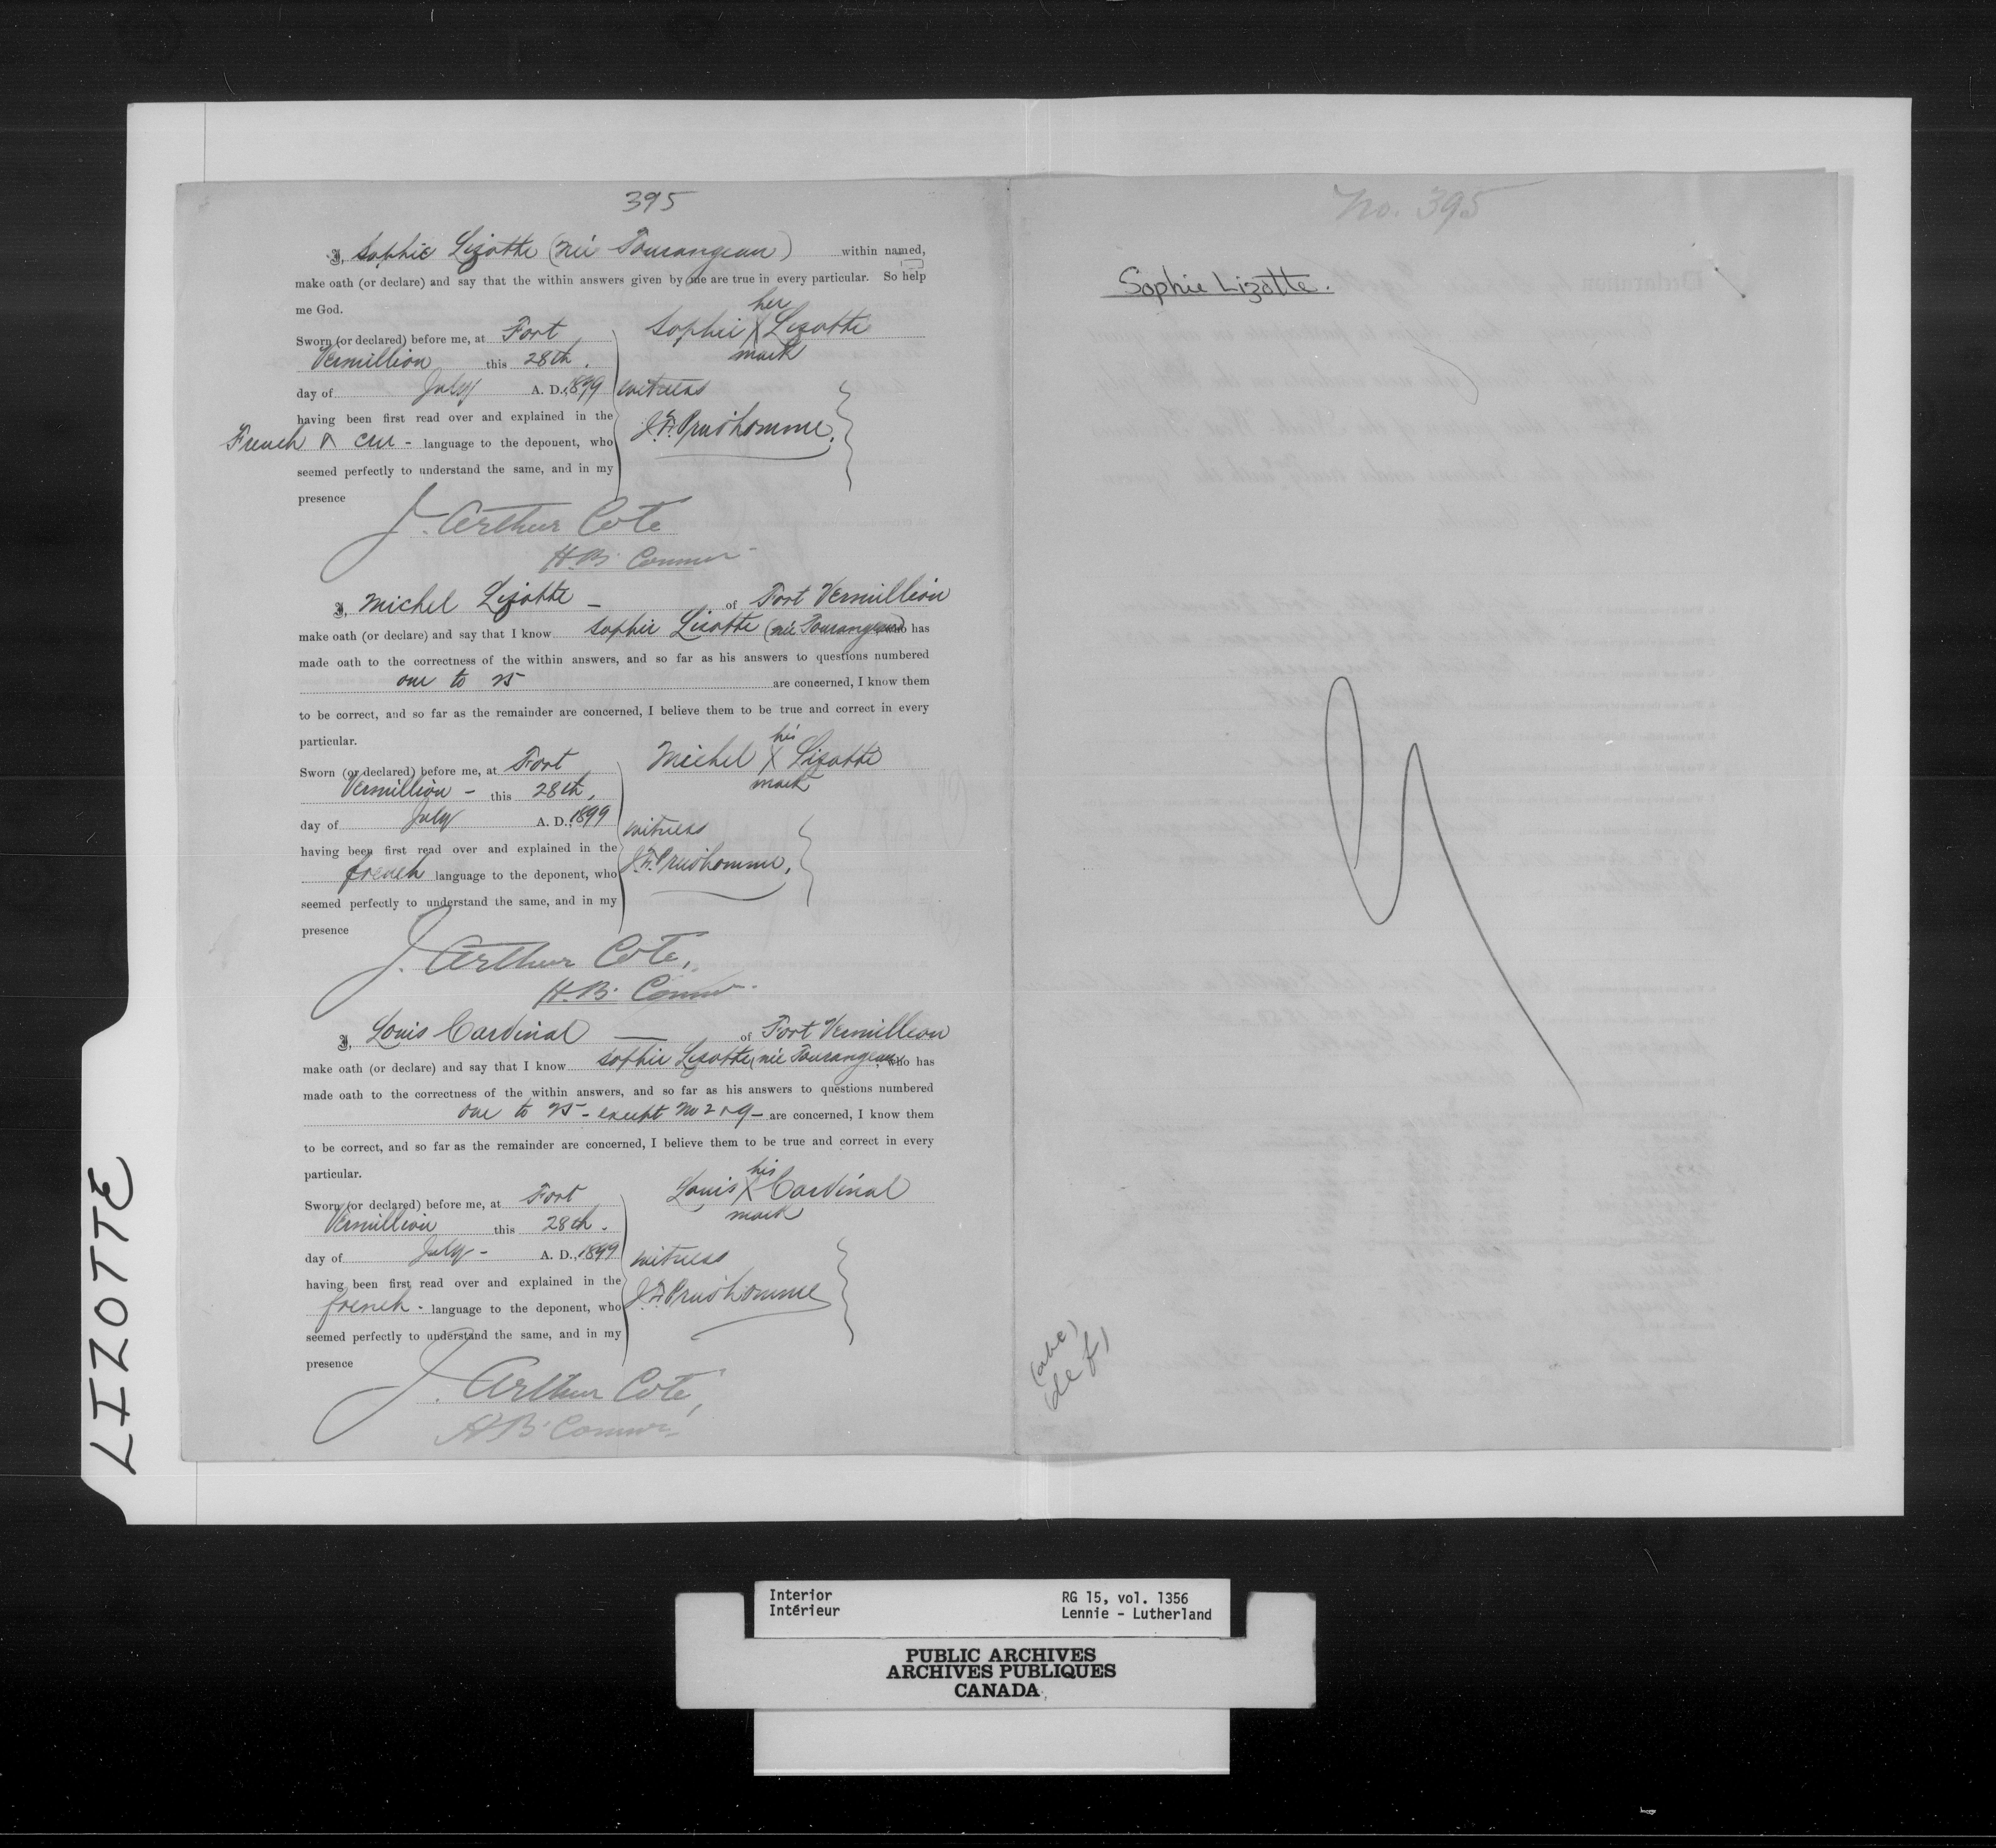 395
I, Sophie Lizotte (née Tourangeau) within named,
make oath (or declare) and say that the within answers given by me are true in every particular. So help
me God.
Sworn (or declared) before me, at Fort
Vermillion this 28th.
day of July A. D., 1899
having been first read over and explained in the
French & Cree - language to the deponent, who
seemed perfectly to understand the same, and in my
presence
her
Sophie X Lizotte
mark
witness
J. F. Prudhomme.
J. Arthur Coté
H.B. Comnr
I, Michel Lizotte - of Fort Vermillion
make oath (or declare) and say that I know Sophie Lizotte (née Tourangeau) who has
made oath to the correctness of the within answers, and so far as his answers to questions numbered
one to 25 are concerned, I know them
to be correct, and so far as the remainder are concerned, I believe them to be true and correct in every
particular.
Sworn (or declared) before me, at Fort
Vermillion - this 28th,
day of July A. D., 1899
having been first read over and explained in the
french language to the deponent, who
seemed perfectly to understand the same, and in my
presence
his
Michel X Lizotte
mark
witness
J. F. Prudhomme.
J. Arthur Coté,
H.B. Comnr.
I, Louis Cardinal of Fort Vermillion
make oath (or declare) and say that I know Sophie Lizotte (née Tourangeau, who has
made oath to the correctness of the within answers, and so far as his answers to questions numbered
one to 25 - except No 2 & 9 - are concerned, I know them
to be correct, and so far as the remainder are concerned, I believe them to be true and correct in every
particular.
Sworn (or declared) before me, at Fort
Vermillion this 28th.
day of July - A. D., 1899
having been first read over and explained in the
french - language to the deponent, who
seemed perfectly to understand the same, and in my
presence
his
Louis X Cardinal
mark
witness
J. F. Prudhomme
J. Arthur Coté,
H.B. Comnr
No. 395
Sophie Lizotte.
(abc)
(def)
LIZOTTE
Interior
Intérieur
RG 15, vol. 1356
Lennie - Lutherland
PUBLIC ARCHIVES
ARCHIVES PUBLIQUES
CANADA